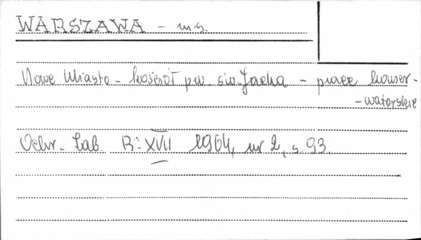 WARSZAWA - m.s.
Nowe Miasto - kościół pw. św. Jacka - prace konser-
-watorskie
Ochr. Zab. R: XVII 1964, nr 2, s. 93